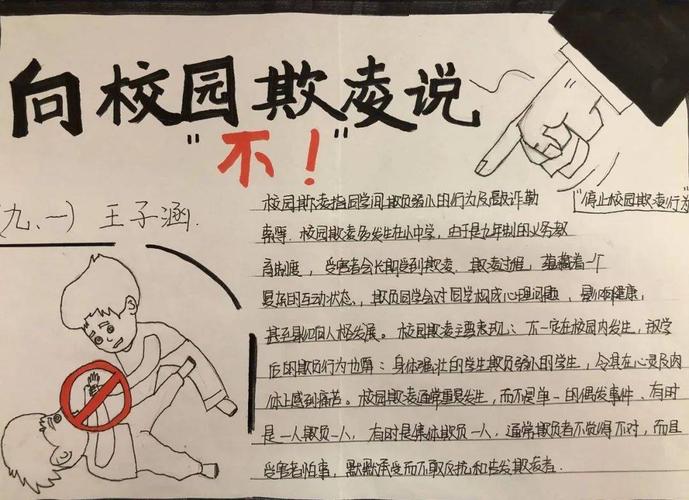 向校园欺凌说
"不！"
(九、一) 王子涵.
"停止校园欺凌行为
校园欺凌指同学间欺负弱小的行为及敲诈勒
索等. 校园欺凌多发生在小中学，由于是九年制的义务教
育制度，受害者会长期受到欺凌. 欺凌过程，蕴藏着一个
复杂的互动状态，欺负同学会对同学构成心理问题，影响健康，
甚至影响人格发展。校园欺凌主要表现：不一定在校园内发生，放学
后的欺负行为也算：身体强壮的学生欺负弱小的学生，令其在心灵及肉
体上感到痛苦。校园欺凌通常重复发生，而不是单一的偶发事件. 有时
是一人欺负一人，有时是集体欺负一人，通常欺负者不觉得不对，而且
受害者怕事，默默承受而不敢反抗和告发欺凌者.